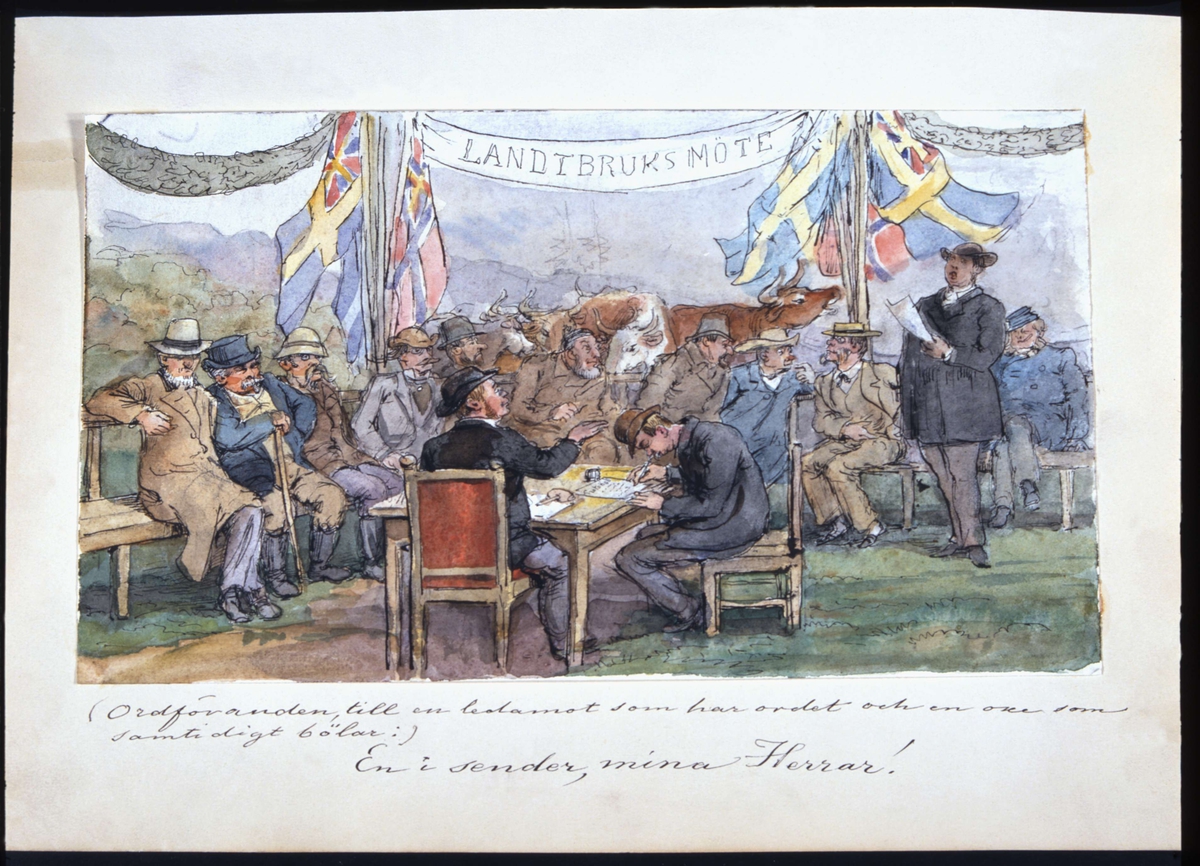 LANDTBRUKSMÖTE
(Ordföranden, till en ledamot som har ordet och en oxe som
samtidigt bölar:)
En i sender, mina Herrar!